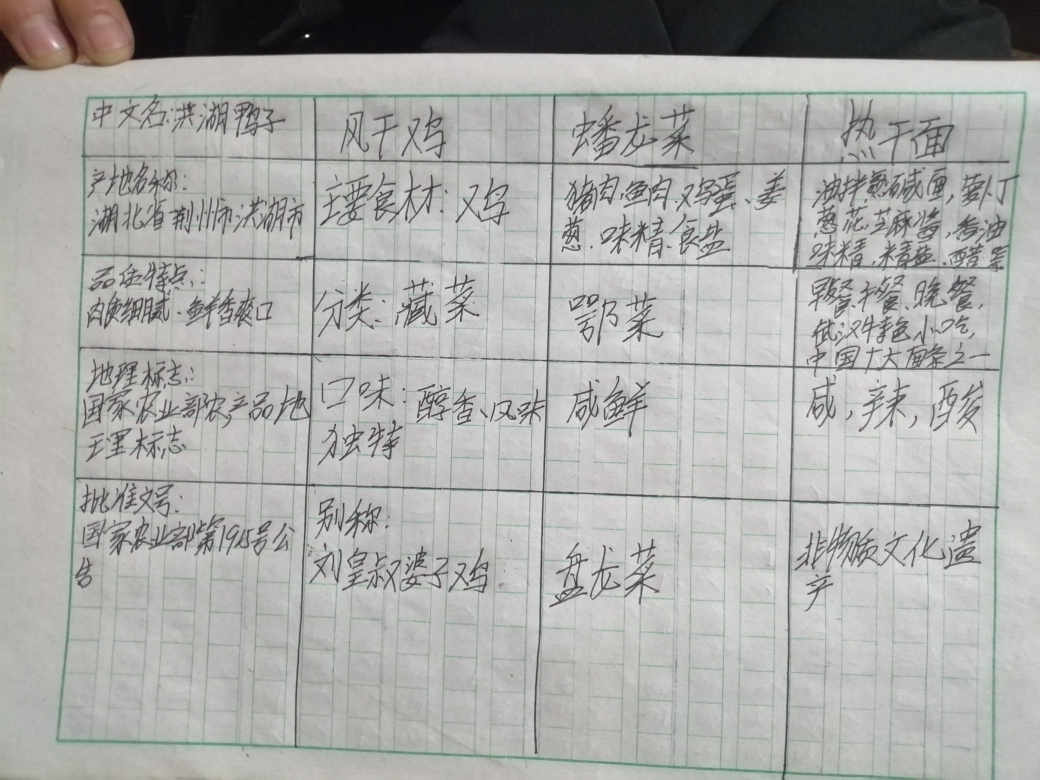 中文名:洪湖鸭子
风干鸡
蟠龙菜
热干面
产地名称:
湖北省荆州市洪湖市
主要食材:鸡
猪肉.鱼肉.鸡蛋、姜
葱.味精.食盐
油拌 碱面,萝卜丁
葱花.芝麻酱,香油
味精.精盐.醋等
品质特点:
肉质细腻、鲜香爽口
分类:藏菜
鄂菜
早餐、午餐、晚餐,
武汉特色小吃,
中国十大面条之一
地理标志:
国家农业部农产品地
理标志
口味:醇香、风味
独特
咸鲜
咸,辣,酸
批准文号:
国家农业部第1915号公
告
别称:
刘皇叔婆子鸡
盘龙菜
非物质文化遗
产